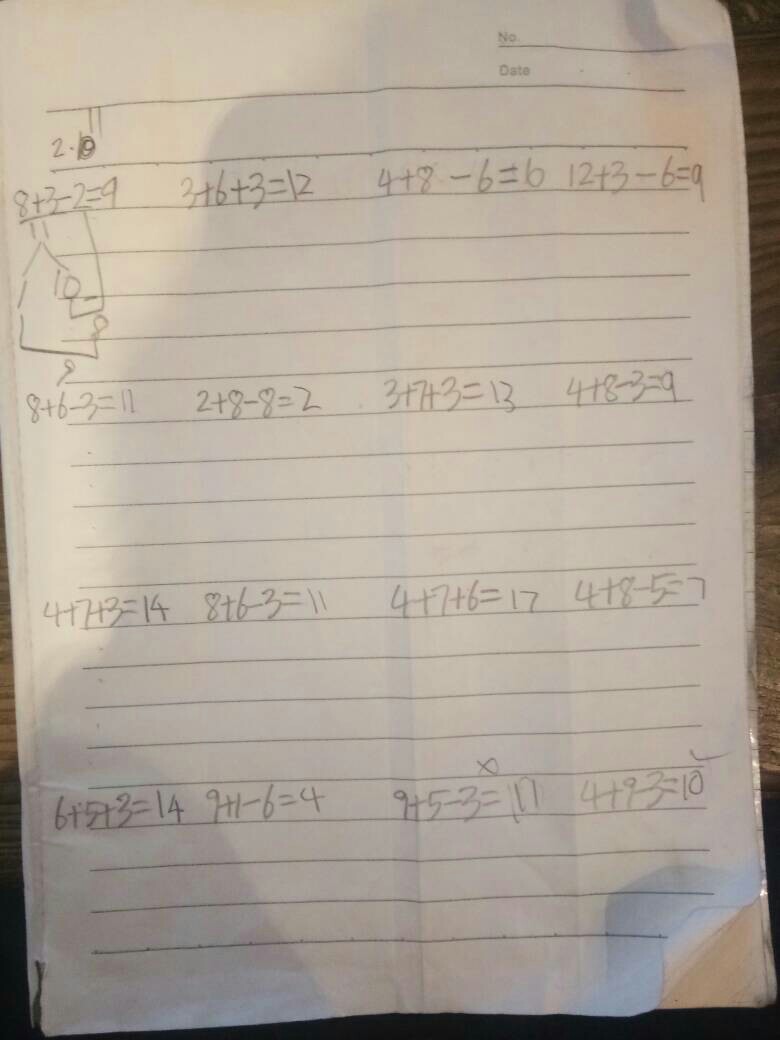 No.
Date
11
2.10
8+3-2=9 3+6+3=12 4+8-6=6 12+3-6=9
11
10
8
9
8+6-3=11 2+8-8=2 3+7+3=13 4+8-3=9
4+7+3=14 8+6-3=11 4+7+6=17 4+8-5=7
6+5+3=14 9+1-6=4 9+5-3=17 4+9-3=10